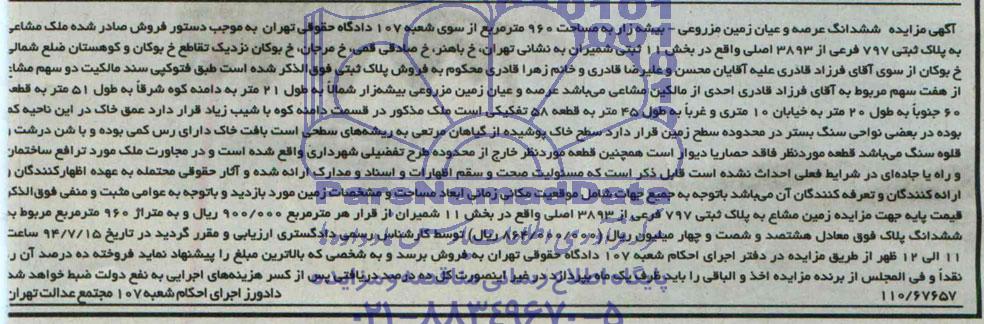 آگهی مزایده ششدانگ عرصه و عیان زمین مزروعی - بیشه زار به مساحت ۹۶۰ مترمربع از سوی شعبه ۱۰۷ دادگاه حقوقی تهران به موجب دستور فروش صادر شده ملک مشاعی
به پلاک ثبتی ۷۹۷ فرعی از ۳۸۹۳ اصلی واقع در بخش ۱۱ ثبتی شمیران به نشانی تهران، خ باهنر، خ صادقی قمی، خ مرجان، خ بوکان نزدیک تقاطع خ بوکان و کوهستان ضلع شمالی
خ بوکان از سوی آقای فرزاد قادری علیه آقایان محسن و علیرضا قادری و خانم زهرا قادری محکوم به فروش پلاک ثبتی فوق الذکر شده است طبق فتوکپی سند مالکیت دو سهم مشاع
از هفت سهم مربوط به آقای فرزاد قادری احدی از مالکین مشاعی می‌باشد عرصه و عیان زمین مزروعی بیشه‌زار شمالاً به طول ۲۱ متر به دامنه کوه شرقاً به طول ۵۱ متر به قطعه
۶۰ جنوباً به طول ۲۰ متر به خیابان ۱۰ متری و غرباً به طول ۴۵ متر به قطعه ۵۸ تفکیکی است ملک مذکور در قسمت دامنه کوه با شیب زیاد قرار دارد عمق خاک در این ناحیه کم
بوده در بعضی نواحی سنگ بستر در محدوده سطح زمین قرار دارد سطح خاک پوشیده از گیاهان مرتعی به ریشه‌های سطحی است بافت خاک دارای رس کمی بوده و با شن درشت و
قلوه سنگ می‌باشد قطعه موردنظر فاقد حصاریا دیوار است همچنین قطعه موردنظر خارج از محدوده طرح تفضیلی شهرداری واقع شده است و در مجاورت ملک مورد ترافع ساختمان
و راه یا جاده‌ای در شرایط فعلی احداث نشده است قابل ذکر است که مسئولیت صحت و سقم اظهارات و اسناد و مدارک ارائه شده و آثار حقوقی محتمله به عهده اظهارکنندگان و
ارائه کنندگان و تعرفه کنندگان آن می‌باشد باتوجه به جمیع جهات شامل موقعیت مکانی زمانی ابعاد مساحت و مشخصات زمین مورد بازدید و باتوجه به عوامی مثبت و منفی فوق‌الذکر
قیمت پایه جهت مزایده زمین مشاع به پلاک ثبتی ۷۹۷ فرعی از ۳۸۹۳ اصلی واقع در بخش ۱۱ شمیران از قرار هر مترمربع ۹۰۰/۰۰۰ ریال و به متراژ ۹۶۰ مترمربع مربوط به
ششدانگ پلاک فوق معادل هشتصد و شصت و چهار میلیون ریال (۸۶۴/۰۰۰/۰۰۰ ریال) توسط کارشناس رسمی دادگستری ارزیابی و مقرر گردید در تاریخ ۹۴/۷/۱۵ ساعت
۱۱ الی ۱۲ ظهر از طریق مزایده در دفتر اجرای احکام شعبه ۱۰۷ دادگاه حقوقی تهران به فروش برسد و به شخصی که بالاترین مبلغ را پیشنهاد نماید فروخته ده درصد آن را
نقداً و فی المجلس از برنده مزایده اخذ و الباقی را باید ظرف یک ماه بپردازد در غیر اینصورت کل ده درصد دریافتی پس از کسر هزینه‌های اجرایی به نفع دولت ضبط خواهد شد
۱۱۰/۶۷۶۵۷ دادورز اجرای احکام شعبه ۱۰۷ مجتمع عدالت تهران
پایگاه اطلاع رسانی مناقصه و مزایده
۰۲۱-۸۸۳۴۹۶۷۰-۵
ParsNamadData